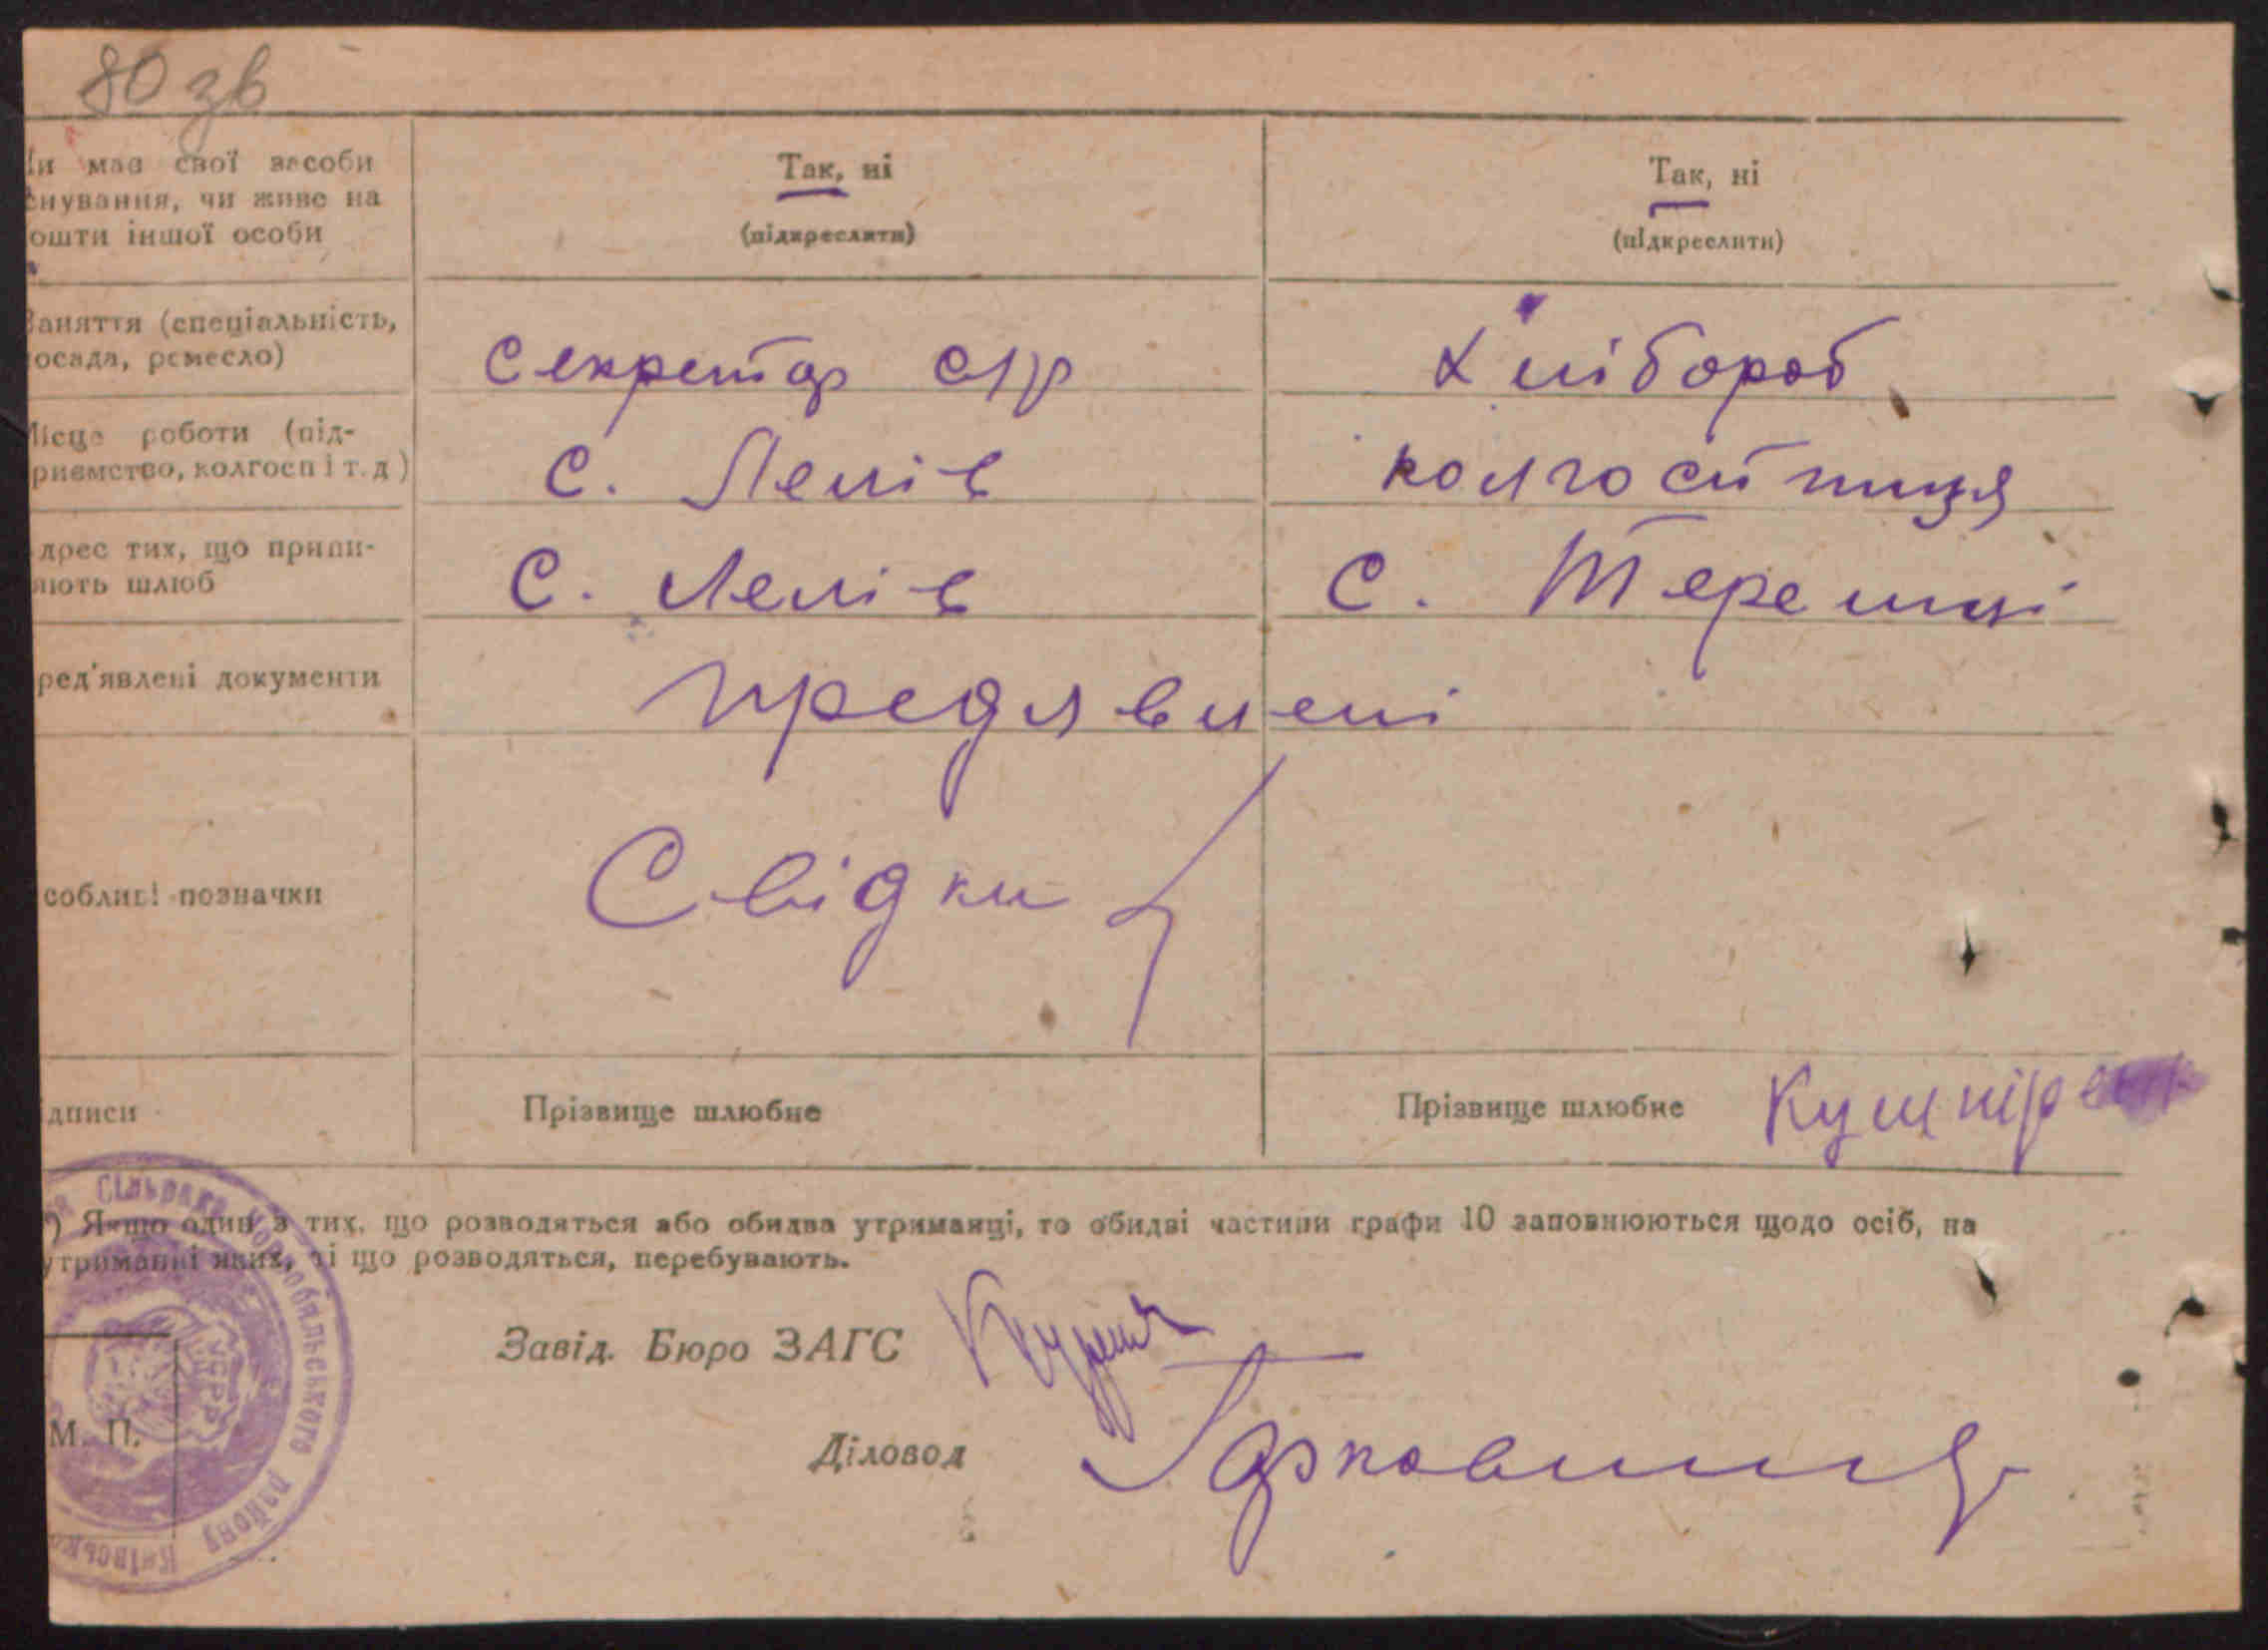 80 зв
и має свої засоби Так, ні Так, ні
снування, чи живе на
ошти іншої особи (підкреслити) (підкреслити)
Заняття (спеціальність,
осада, ремесло) Секретар с/р Хлібороб
Місце роботи (під-
риємство, колгосп і т. д) С. Лелів колгоспниця
дрес тих, що прийи-
ають шлюб С. Лелів С. Теремці
ред'явлені документи предявлені
собливі позначки Свідки
дписи Прізвище шлюбне Прізвище шлюбне
*) Якщо один з тих, що розводяться або обидва утриманці, то обидві частини графи 10 заповнюються щодо осіб, на
утриманні яких, ті що розводяться, перебувають.
Завід. Бюро ЗАГС
Діловод
М. П.
Сільрада Чорнобильського району Київсько
УСРР